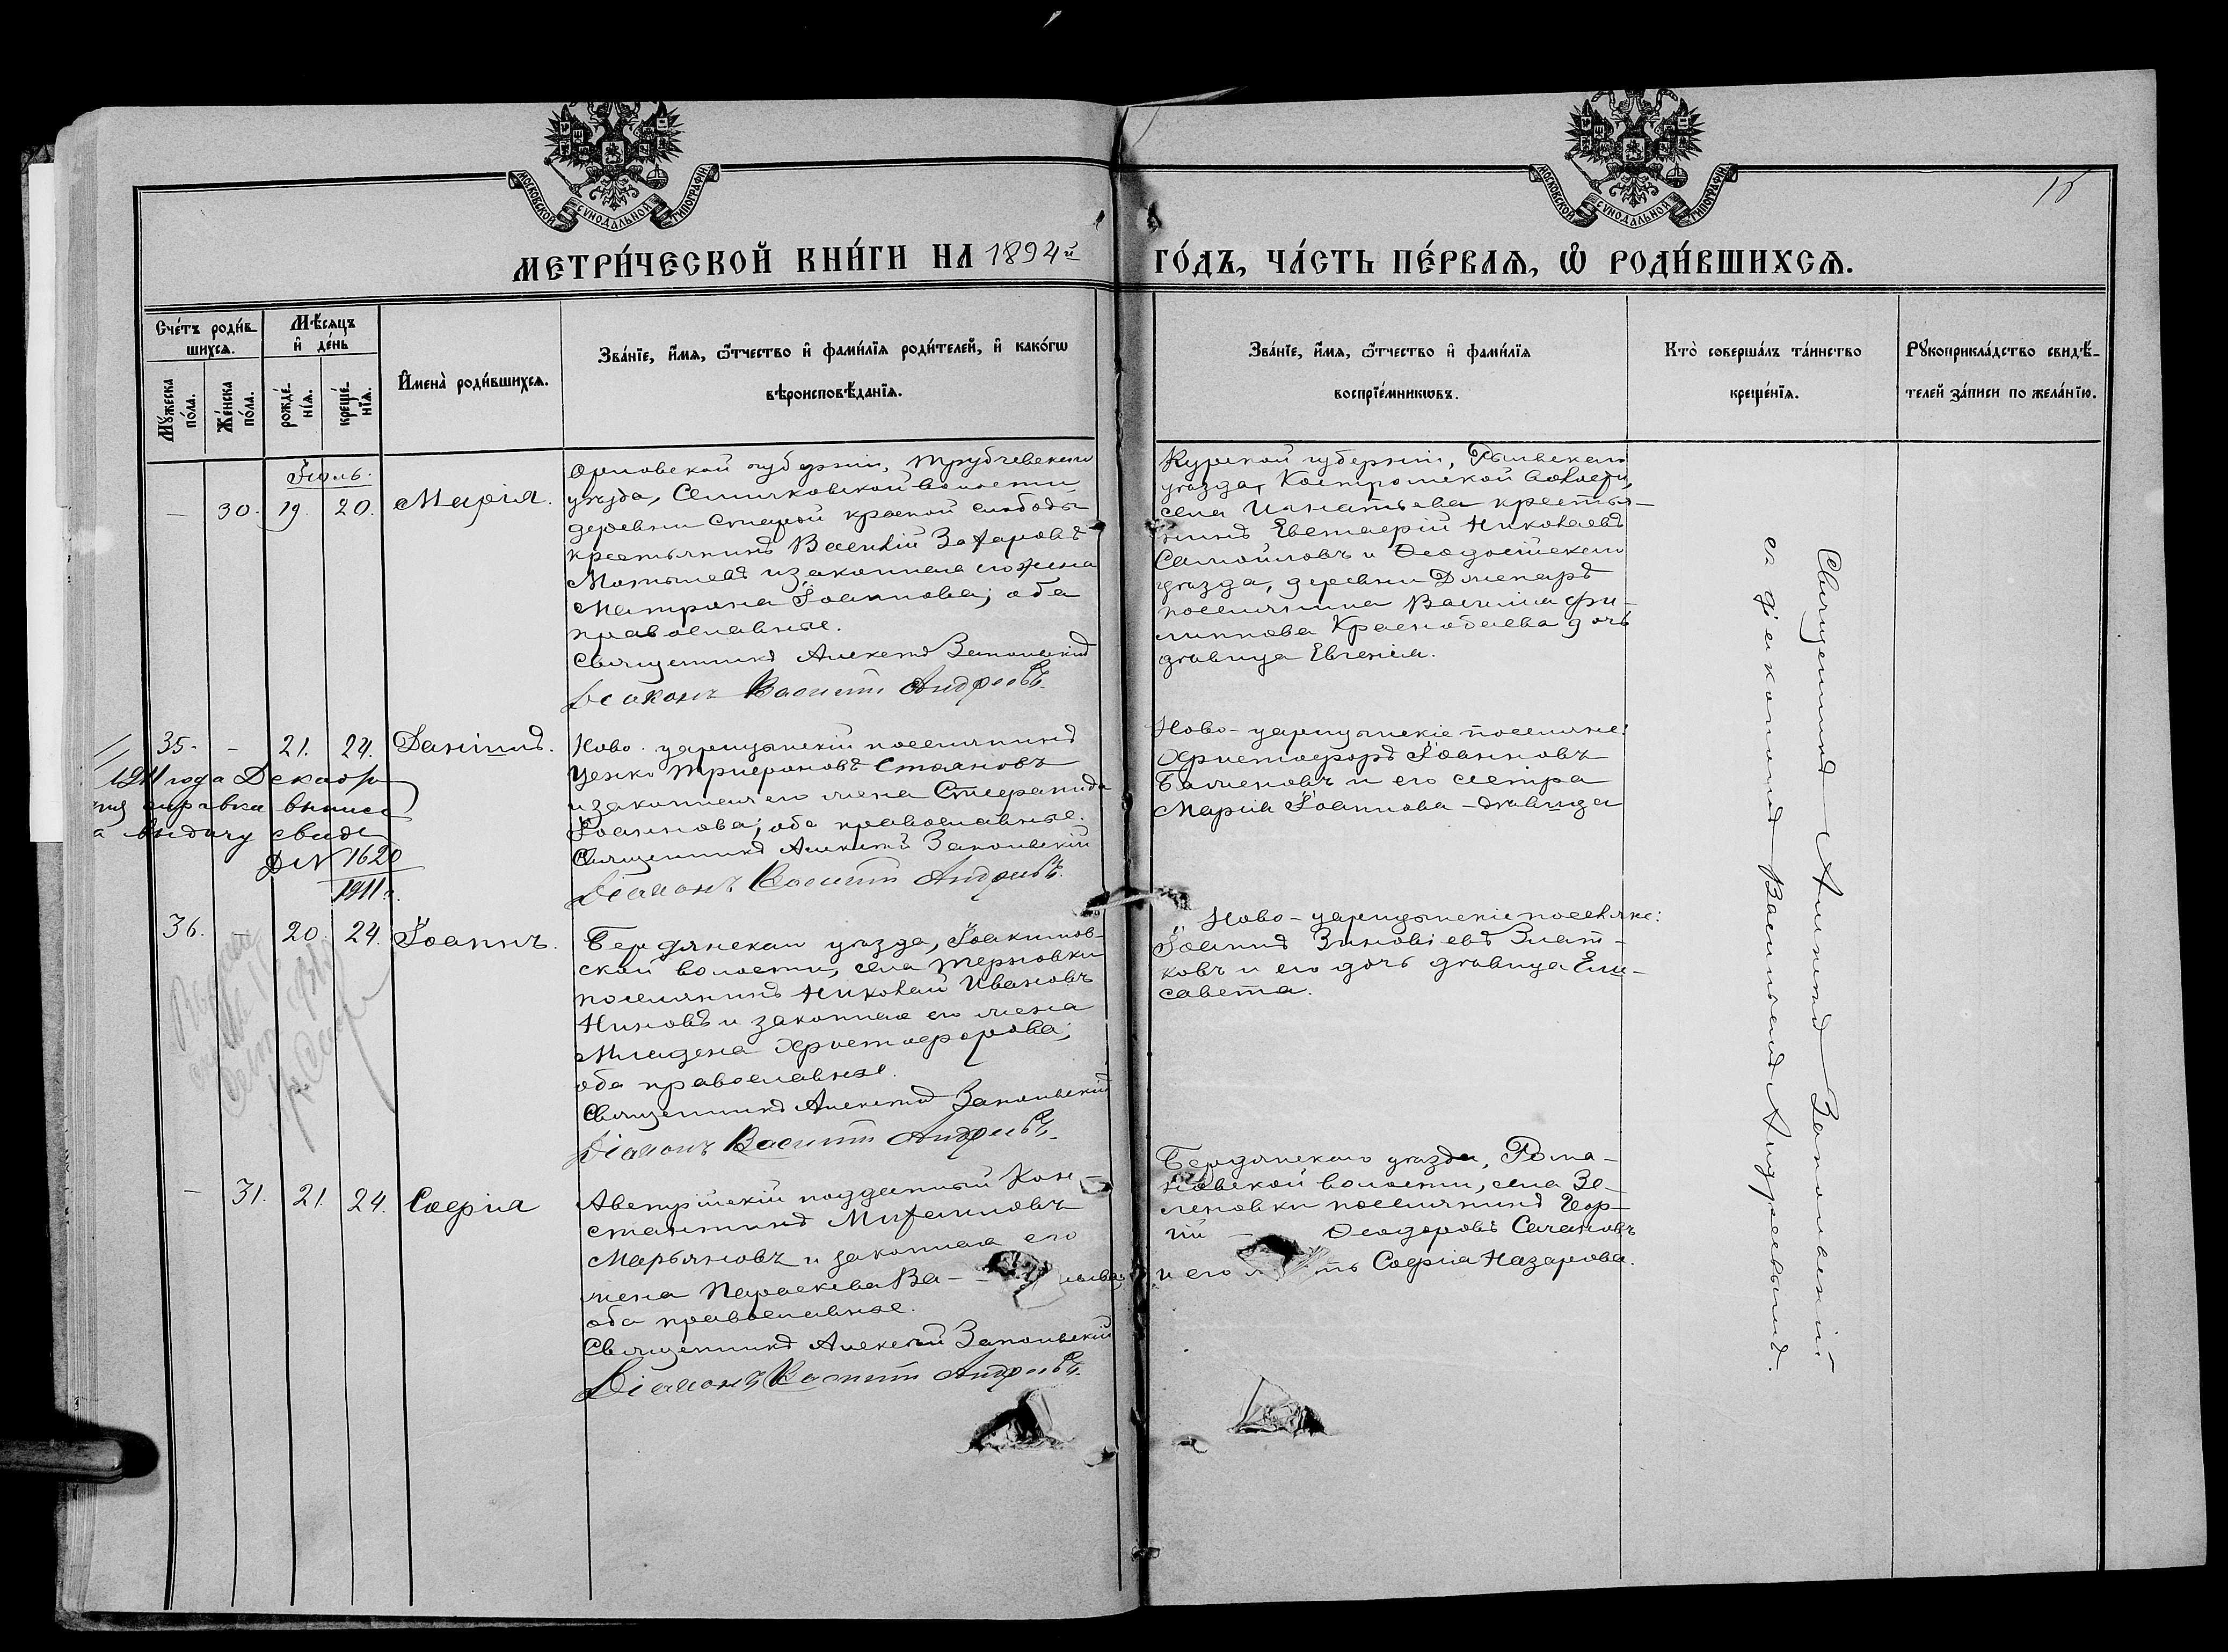 МОСКОВСКОЙ СѴНОДАЛЬНОЙ ТИПОГРАФІИ
МОСКОВСКОЙ СѴНОДАЛЬНОЙ ТИПОГРАФІИ
15
МЕТРИ́ЧЕСКОЙ КНИ́ГИ НА 1894й ГО́ДЪ, ЧА́СТЬ ПЕ́РВАѦ, Ѡ҆ РОДИ́ВШИХСѦ.
Сче́тъ роди́в-
шихсѧ.
Мѣ́сѧцъ
и҆ де́нь
Мꙋ́жеска
по́ла.
Же́нска
по́ла.
рожде́-
нїѧ.
креще́-
нїѧ.
И҆мена̀ роди́вшихсѧ.
Зва́нїе, и҆́мѧ, ѻ҆́тчество и҆ фами́лїѧ роди́телей, и҆ како́гѡ
вѣроисповѣ́данїѧ.
Зва́нїе, и҆́мѧ, ѻ҆́тчество и҆ фами́лїѧ
воспрїе́мникѡвъ.
Кто̀ соверша́лъ та́инство
креще́нїѧ.
Рꙋкоприкла́дство свидѣ́-
телей за́писи по жела́нїю.
Іюль.
— 30. 19. 20. Марія.
Орловской губерніи, Трубчевскаго
уѣзда, Семячковской волости
деревни Старой красной слободы
крестьянинъ Василій Захаровъ
и законная его жена
Матрона Іоаннова; оба
православные.
Священникъ Алексій Запольскій
Діаконъ Василій Андреевъ.
Курской губерніи, Рыльскаго
уѣзда, Костромской волости,
села Игнатьева крестья-
нинъ Евстафій Николаевъ
Самойловъ и Ѳеодосійскаго
уѣзда, деревни
поселянина Василія Фи-
липпова Краснобаева дочь
дѣвица Евгенія.
35. - 21. 24. Даніилъ.
Ново-царицынскій поселянинъ
Ценко Трифоновъ Стояновъ
и законная его жена Стефанида
Іоаннова; оба православные.
Священникъ Алексій Запольскій
Діаконъ Василій Андреевъ.
Ново-царицынскіе поселяне:
Христофоръ Іоанновъ
и его сестра
Марія Іоаннова - дѣвица
1911 года Декабр
справка выписа
выдачу свид
№ 1620
1911 г.
36. - 20. 24. Іоаннъ.
Бердянскаго уѣзда, Іоакимов-
ской волости, села Терновки
поселянинъ Николай Ивановъ
Ниновъ и законная его жена
Младена Христофорова;
оба православные.
Священникъ Алексій Запольскій
Діаконъ Василій Андреевъ.
Ново-царицынскіе поселяне:
Іоаннъ Зиновіевъ Злат-
ковъ и его дочь дѣвица Ели-
савета.
— 31. 21. 24. Софія
Австрійскій подданный Кон-
стантинъ Михаиловъ
Марьяновъ и законная его
жена Параскева Ва-
оба православные.
Священникъ Алексій Запольскій
Діаконъ Василій Андреевъ.
Бердянскаго уѣзда, Рома-
новской волости, села Зе-
леновки поселянинъ Геор-
гій — Ѳеодоровъ
и его Софія Назарова.
Священникъ Алексій Запольскій
съ діакономъ Василіемъ Андреевымъ.